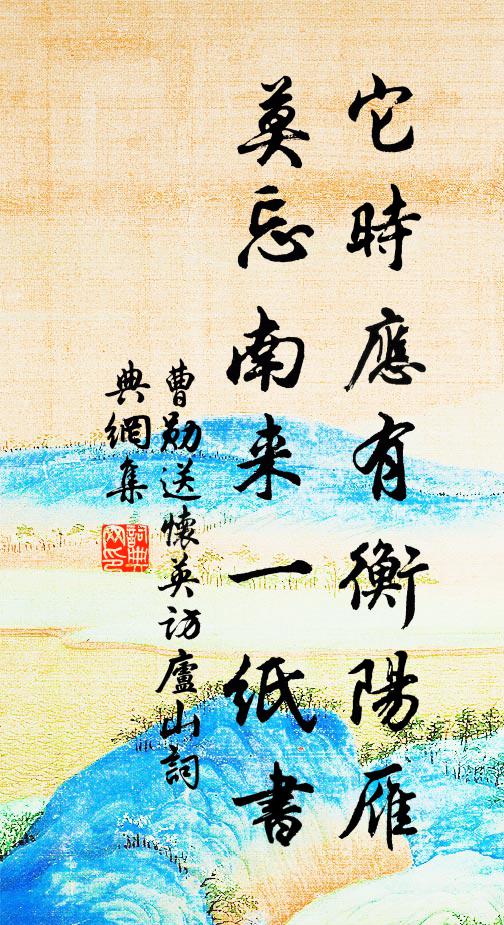 它時應有衡陽雁
莫忘南来一紙書
曹勛送懷英訪廬山詞
典網集
詞典網印